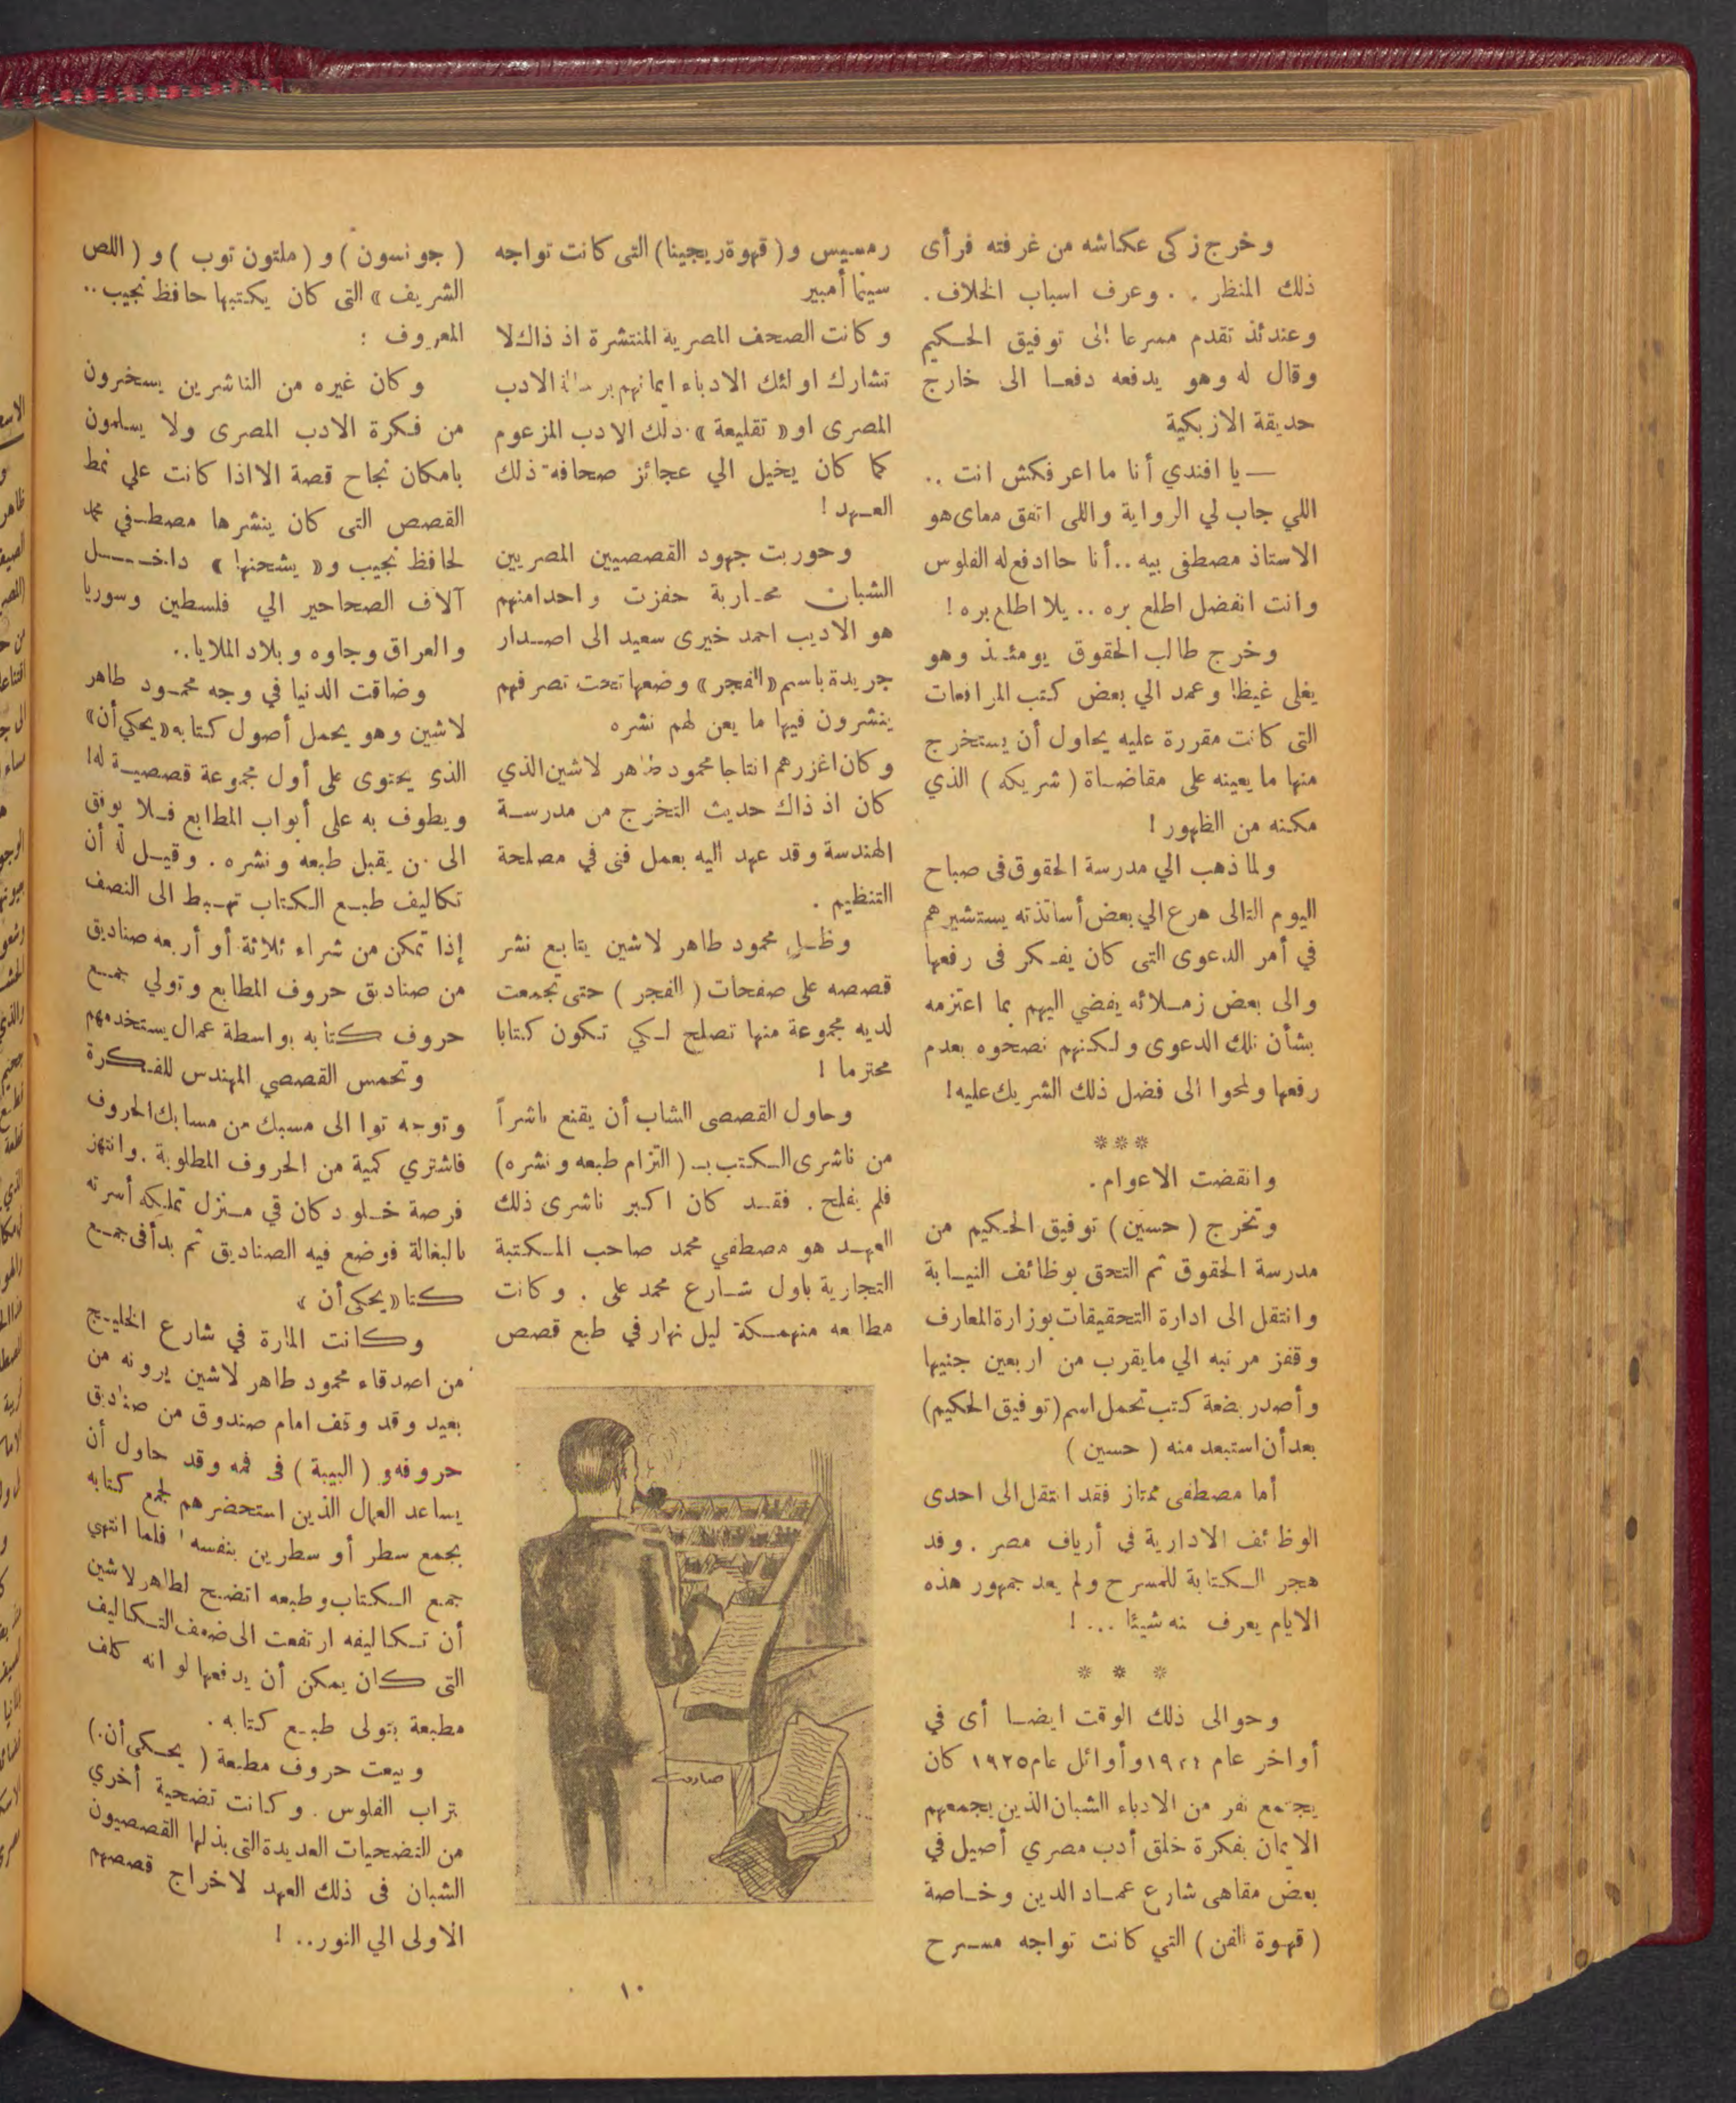 وخرج زكى عكاشه من غرفته فرأى
ذلك المنظر . . وعرف اسباب الخلاف .
وعندئذ تقدم مسرعا الى توفيق الحكيم
وقال له وهو يدفعه دفعا الى خارج
حديقة الازبكية
— يا افندي أنا ما اعرفكش انت ..
اللي جاب لي الرواية واللى اتفق معاى هو
الاستاذ مصطفى بيه .. أنا حا ادفع له الفلوس
وانت اتفضل اطلع بره .. يلا اطلع بره !
وخرج طالب الحقوق يومئذ وهو
يغلى غيظا وعمد الي بعض كتب المرافعات
التى كانت مقررة عليه يحاول أن يستخرج
منها ما يعينه على مقاضاة ( شريكه ) الذي
مكنه من الظهور !
ولما ذهب الي مدرسة الحقوق فى صباح
اليوم التالى هرع الي بعض أساتذته يستشيرهم
في أمر الدعوى التى كان يفكر فى رفعها
والى بعض زملائه يفضي اليهم بما اعتزمه
بشأن تلك الدعوى ولكنهم نصحوه بعدم
رفعها ولمحوا الى فضل ذلك الشريك عليه !
***
وانقضت الاعوام .
وتخرج ( حسين ) توفيق الحكيم من
مدرسة الحقوق ثم التحق بوظائف النيابة
وانتقل الى ادارة التحقيقات بوزارة المعارف
وقفز مرتبه الي ما يقرب من اربعين جنيها
وأصدر بضعة كتب تحمل اسم (توفيق الحكيم)
بعد أن استبعد منه ( حسين )
أما مصطفى ممتاز فقد انتقل الى احدى
الوظائف الادارية في أرياف مصر . وقد
هجر الكتابة للمسرح ولم يعد جمهور هذه
الايام يعرف عنه شيئا ... !
* * *
وحوالى ذلك الوقت ايضا أى في
أواخر عام ١٩٢٤ وأوائل عام ١٩٢٥ كان
يجتمع نفر من الادباء الشبان الذين يجمعهم
الايمان بفكرة خلق أدب مصري أصيل في
بعض مقاهى شارع عماد الدين وخاصة
( قهوة الفن ) التي كانت تواجه مسرح
رمسيس و ( قهوة ريجينا ) التى كانت تواجه
سينما أمبير
وكانت الصحف المصرية المنتشرة اذ ذاك لا
تشارك اولئك الادباء ايمانهم برسالة الادب
المصرى او « تقليعة » ذلك الادب المزعوم
كما كان يخيل الي عجائز صحافة ذلك
العهد !
وحوربت جهود القصصيين المصريين
الشبان محاربة حفزت واحدا منهم
هو الاديب احمد خيرى سعيد الى اصدار
جريدة باسم « الفجر » وضعها تحت تصرفهم
ينشرون فيها ما يعن لهم نشره
وكان اغزرهم انتاجا محمود طاهر لاشين الذي
كان اذ ذاك حديث التخرج من مدرسة
الهندسة وقد عهد اليه بعمل فنى في مصلحة
التنظيم .
وظل محمود طاهر لاشين يتابع نشر
قصصه على صفحات ( الفجر ) حتى تجمعت
لديه مجموعة منها تصلح لكي تكون كتابا
محترما !
وحاول القصصى الشاب أن يقنع ناشراً
من ناشرى الكتب بـ ( التزام طبعه ونشره )
فلم يفلح . فقد كان اكبر ناشرى ذلك
العهد هو مصطفي محمد صاحب المكتبة
التجارية باول شارع محمد على . وكانت
مطابعه منهمكة ليل نهار في طبع قصص
صاروخ
( جونسون ) و ( ملتون توب ) و ( اللص
الشريف » التى كان يكتبها حافظ نجيب ..
المعروف :
وكان غيره من الناشرين يسخرون
من فكرة الادب المصرى ولا يسلمون
بامكان نجاح قصة الا اذا كانت علي نمط
القصص التى كان ينشرها مصطفي محمد
لحافظ نجيب و « يشحنها » داخل
آلاف الصحاحير الي فلسطين وسوريا
والعراق وجاوه وبلاد الملايا ..
وضاقت الدنيا في وجه محمود طاهر
لاشين وهو يحمل أصول كتابه « يحكى أن »
الذى يحتوى على أول مجموعة قصصية له !
ويطوف به على أبواب المطابع فلا يوفق
الى من يقبل طبعه ونشره . وقيل له أن
تكاليف طبع الكتاب تهبط الى النصف
إذا تمكن من شراء ثلاثة أو أربعه صناديق
من صناديق حروف المطابع وتولي جمع
حروف كتابه بواسطة عمال يستخدمهم
وتحمس القصصي المهندس للفكرة
وتوجه توا الى مسبك من مسابك الحروف
فاشتري كمية من الحروف المطلوبة . وانتهز
فرصة خلو دكان في منزل تملكه أسرته
بالبغالة فوضع فيه الصناديق ثم بدأ فى جمع
كتا « يحكى أن »
وكانت المارة في شارع الخليج
من اصدقاء محمود طاهر لاشين يرونه من
بعيد وقد وقف امام صندوق من صناديق
حروفه و ( البيبة ) فى فمه وقد حاول أن
يساعد العمال الذين استحضرهم لجمع كتابه
بجمع سطر أو سطرين بنفسه ' فلما انتهي
جمع الكتاب وطبعه اتضح لطاهر لاشين
أن تكاليفه ارتفعت الى ضعف التكاليف
التى كان يمكن أن يدفعها لو انه كلف
مطبعة بتولى طبع كتابه .
وبيعت حروف مطبعة ( يحكى أن . )
بتراب الفلوس . وكانت تضحية أخري
من التضحيات العديدة التى بذلها القصصيون
الشبان فى ذلك العهد لاخراج قصصهم
الاولى الي النور .. !
١٠